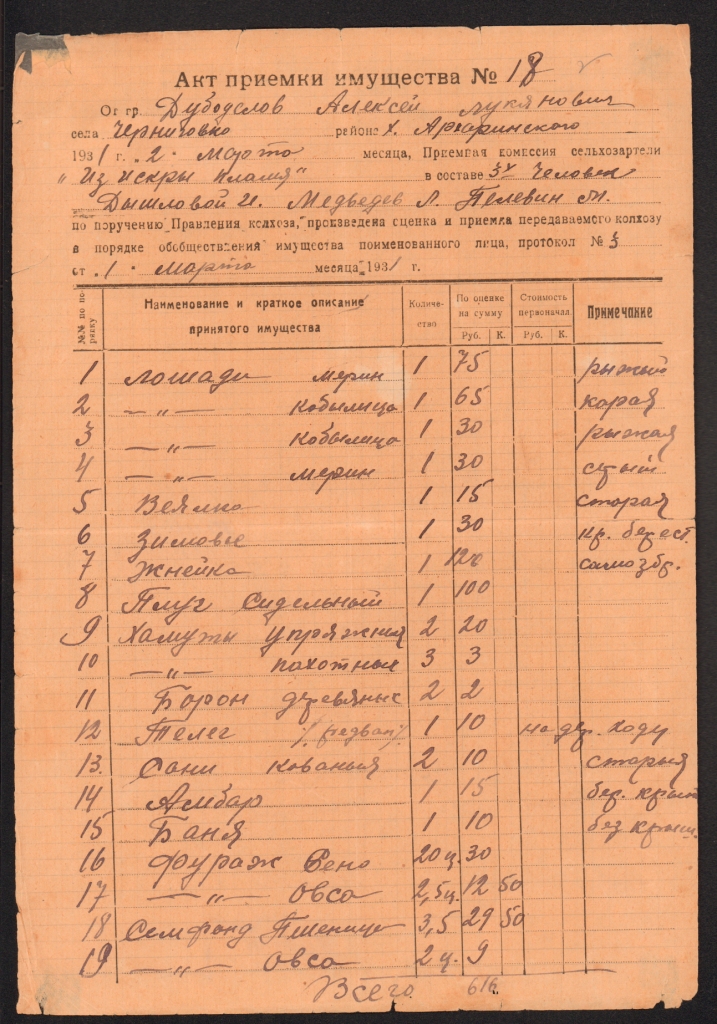 Акт приемки имущества № 18
От гр. Дубодслов Алексей Лукянович
села Черниговко района Х. Архаринского
1931 г. 2. Марта месяца, Приемная комиссия сельхозартели
"Из искры пламя" в составе 3х человек
Дышловой И. Медведев Л. Пелевин М.
по поручению Правления колхоза, произведена оценка и приемка передаваемого колхозу
в порядке обобществления имущества поименованного лица, протокол № 3
от 1 марта месяца 1931 г.
№№ по порядку Наименование и краткое описание принятого имущества Количество По оценке на сумму Руб. К. Стоимость первоначал. Руб. К. Примечание
1 лошади мерин 1 75 рыжый
2 —„— кобылица 1 65 карая
3 —„— кобылица 1 30 рыжая
4 —„— мерин 1 30 серый
5 Веялка 1 15 старая
6 Зимовье 1 30 кр. берест.
7 Жнейка 1 120 самозбр.
8 Плуг сидельный 1 100
9 Хамуты упряжныя 2 20
10 —„— пахотные 3 3
11 Борон деревяных 2 2
12 Телег 1 10 на дер. ходу
13. Сани кованыя 2 10 старыя
14 Амбар 1 15 бер. крыш
15 Баня 1 10 без крыш.
16 Фураж Сено 20 ц. 30
17 —„— Овса 2,5 ц. 12 50
18 Семфонд Пшеница 3,5 29 50
19 —„— Овса 2 ц. 9
Всего 616